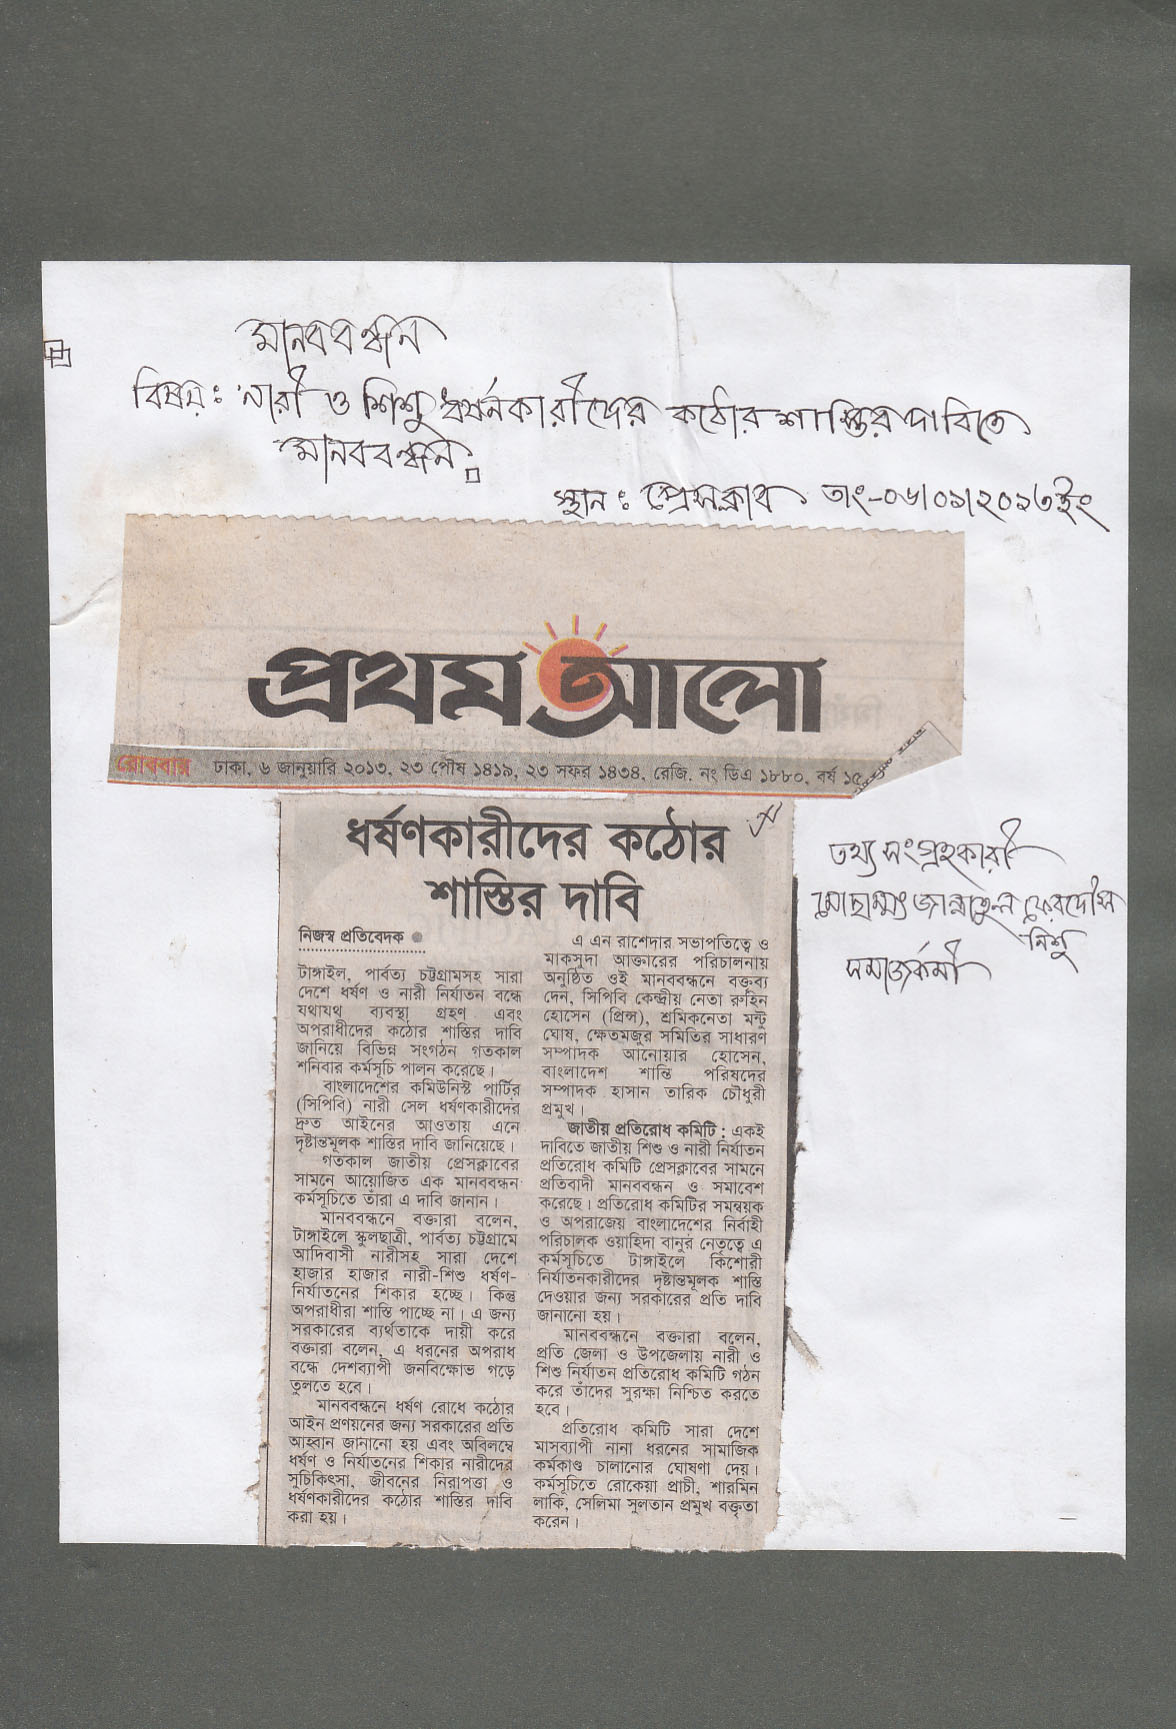 মানববন্ধন
বিষয়: নারী ও শিশু ধর্ষনকারীদের কঠোর শাস্তির দাবিতে
মানববন্ধন
স্থান: প্রেসক্লাব তাং-০৬/০১/২০১৩ইং
প্রথম আলো
রোববার ঢাকা, ৬ জানুয়ারি ২০১৩, ২৩ পৌষ ১৪১৯, ২৩ সফর ১৪৩৪, রেজি. নং ডিএ ১৮৮০, বর্ষ ১৫
ধর্ষণকারীদের কঠোর
শাস্তির দাবি
নিজস্ব প্রতিবেদক ●
টাঙ্গাইল, পার্বত্য চট্টগ্রামসহ সারা
দেশে ধর্ষণ ও নারী নির্যাতন বন্ধে
যথাযথ ব্যবস্থা গ্রহণ এবং
অপরাধীদের কঠোর শাস্তির দাবি
জানিয়ে বিভিন্ন সংগঠন গতকাল
শনিবার কর্মসূচি পালন করেছে।
বাংলাদেশের কমিউনিস্ট পার্টির
(সিপিবি) নারী সেল ধর্ষণকারীদের
দ্রুত আইনের আওতায় এনে
দৃষ্টান্তমূলক শাস্তির দাবি জানিয়েছে।
গতকাল জাতীয় প্রেসক্লাবের
সামনে আয়োজিত এক মানববন্ধন
কর্মসূচিতে তাঁরা এ দাবি জানান।
মানববন্ধনে বক্তারা বলেন,
টাঙ্গাইলে স্কুলছাত্রী, পার্বত্য চট্টগ্রামে
আদিবাসী নারীসহ সারা দেশে
হাজার হাজার নারী-শিশু ধর্ষণ-
নির্যাতনের শিকার হচ্ছে। কিন্তু
অপরাধীরা শাস্তি পাচ্ছে না। এ জন্য
সরকারের ব্যর্থতাকে দায়ী করে
বক্তারা বলেন, এ ধরনের অপরাধ
বন্ধে দেশব্যাপী জনবিক্ষোভ গড়ে
তুলতে হবে।
মানববন্ধনে ধর্ষণ রোধে কঠোর
আইন প্রণয়নের জন্য সরকারের প্রতি
আহ্বান জানানো হয় এবং অবিলম্বে
ধর্ষণ ও নির্যাতনের শিকার নারীদের
সুচিকিৎসা, জীবনের নিরাপত্তা ও
ধর্ষণকারীদের কঠোর শাস্তির দাবি
করা হয়।
এ এন রাশেদার সভাপতিত্বে ও
মাকসুদা আক্তারের পরিচালনায়
অনুষ্ঠিত ওই মানববন্ধনে বক্তব্য
দেন, সিপিবি কেন্দ্রীয় নেতা রুহিন
হোসেন (প্রিন্স), শ্রমিকনেতা মন্টু
ঘোষ, ক্ষেতমজুর সমিতির সাধারণ
সম্পাদক আনোয়ার হোসেন,
বাংলাদেশ শান্তি পরিষদের
সম্পাদক হাসান তারিক চৌধুরী
প্রমুখ।
জাতীয় প্রতিরোধ কমিটি: একই
দাবিতে জাতীয় শিশু ও নারী নির্যাতন
প্রতিরোধ কমিটি প্রেসক্লাবের সামনে
প্রতিবাদী মানববন্ধন ও সমাবেশ
করেছে। প্রতিরোধ কমিটির সমন্বয়ক
ও অপরাজেয় বাংলাদেশের নির্বাহী
পরিচালক ওয়াহিদা বানুর নেতৃত্বে এ
কর্মসূচিতে টাঙ্গাইলে কিশোরী
নির্যাতনকারীদের দৃষ্টান্তমূলক শাস্তি
দেওয়ার জন্য সরকারের প্রতি দাবি
জানানো হয়।
মানববন্ধনে বক্তারা বলেন,
প্রতি জেলা ও উপজেলায় নারী ও
শিশু নির্যাতন প্রতিরোধ কমিটি গঠন
করে তাঁদের সুরক্ষা নিশ্চিত করতে
হবে।
প্রতিরোধ কমিটি সারা দেশে
মাসব্যাপী নানা ধরনের সামাজিক
কর্মকাণ্ড চালানোর ঘোষণা দেয়।
কর্মসূচিতে রোকেয়া প্রাচী, শারমিন
লাকি, সেলিমা সুলতান প্রমুখ বক্তৃতা
করেন।
তথ্য সংগ্রহকারী
মোছাম্মৎ জান্নাতুল ফেরদৌস
নিশু
সমাজকর্মী